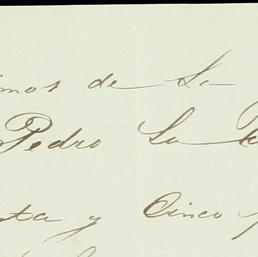 imos de La
Pedro La
nta y Cinco